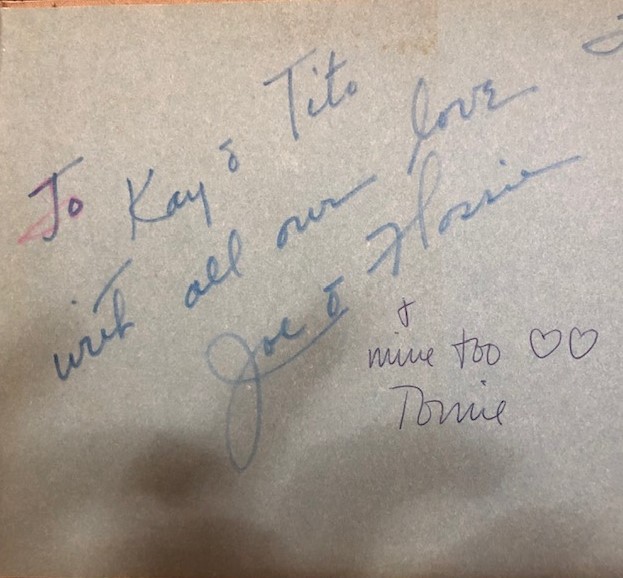 To Kay & Tito
with all our love
Joe & Flossie
+
mine too ♡♡